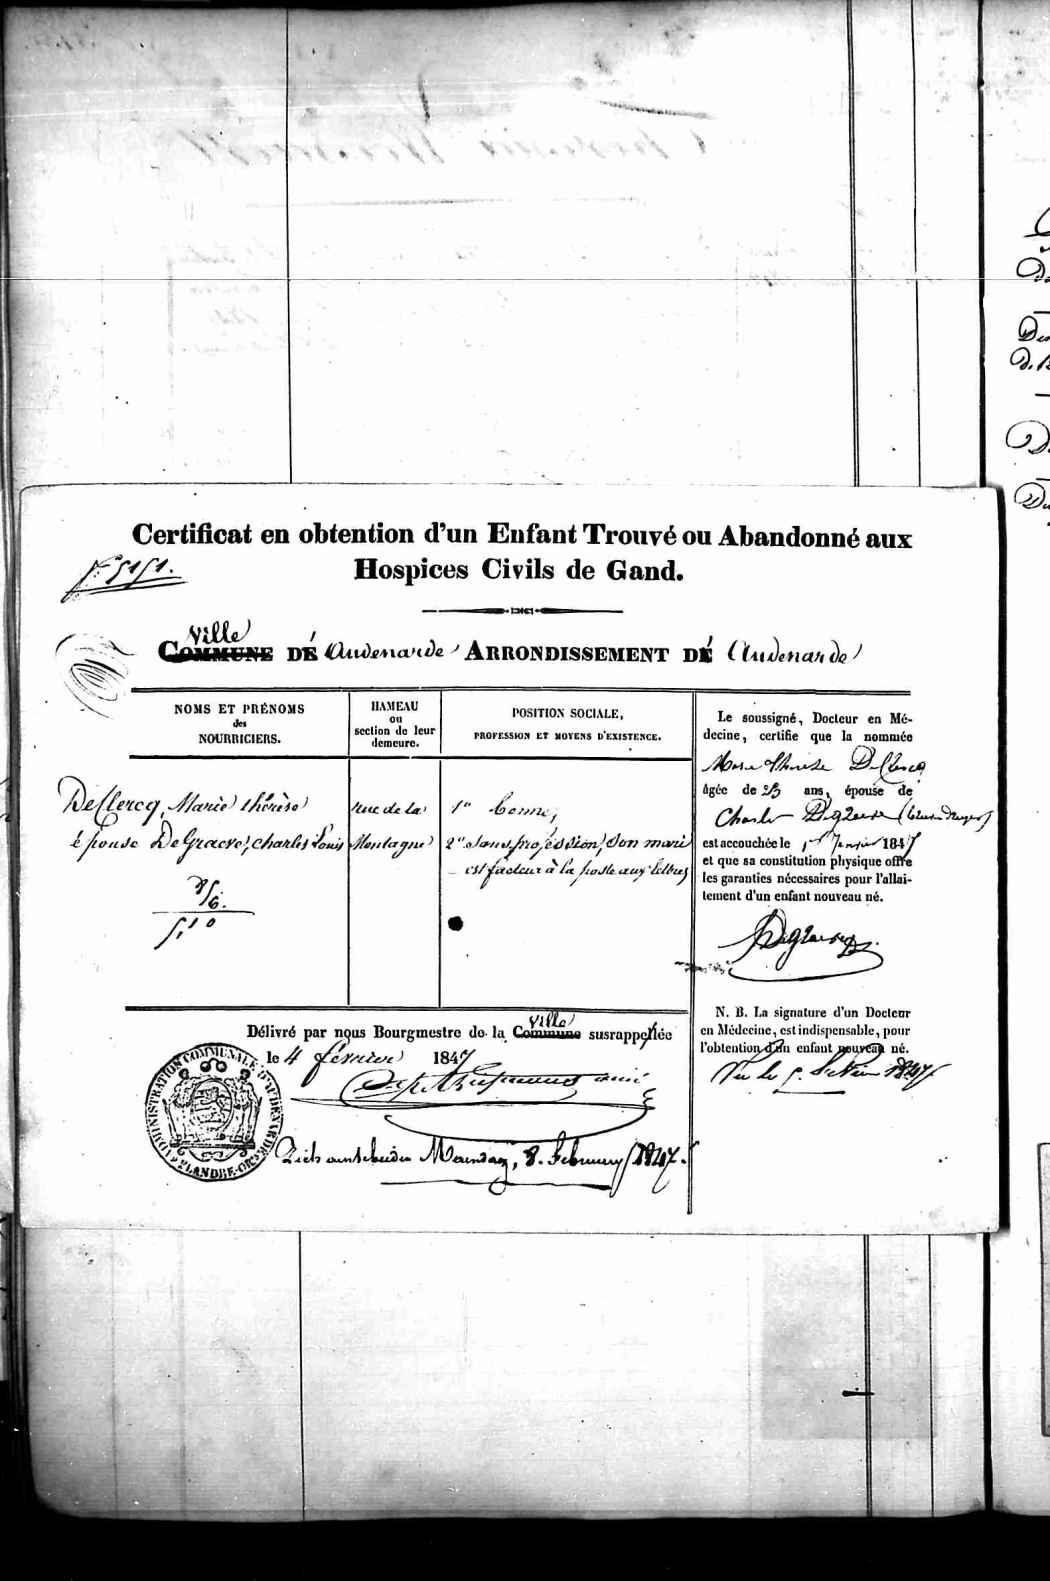 Certificat en obtention d'un Enfant Trouvé ou Abandonné aux
Hospices Civils de Gand.
Ville
COMMUNE DE Audenarde ARRONDISSEMENT DE Audenarde
NOMS ET PRÉNOMS
des
NOURRICIERS.
HAMEAU
ou
section de leur
demeure.
POSITION SOCIALE,
PROFESSION ET MOYENS D'EXISTENCE.
DeClercq, Marie thérèse
épouse DeGraeve, charles Louis
rue de la
Montagne
1° bonne,
2° sans profession, son mari
est facteur à la poste aux lettres
Le soussigné, Docteur en Mé-
decine, certifie que la nommée
Marie Therese DeClercq
âgée de 23 ans, épouse de
Charles Degraeve
est accouchée le 1847
et que sa constitution physique offre
les garanties nécessaires pour l'allai-
tement d'un enfant nouveau né.
N. B. La signature d'un Docteur
en Médecine, est indispensable, pour
l'obtention d'un enfant nouveau né.
Vu le 1847
Ville
Délivré par nous Bourgmestre de la Commune susrappelée
le 4 février 1847
8. February 1847.
ADMINISTRATION COMMUNALE D'AUDENARDE
FLANDRE-OR